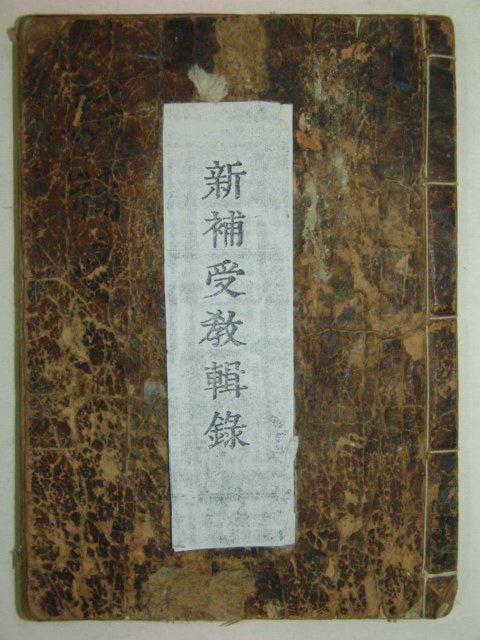 新補受敎輯錄